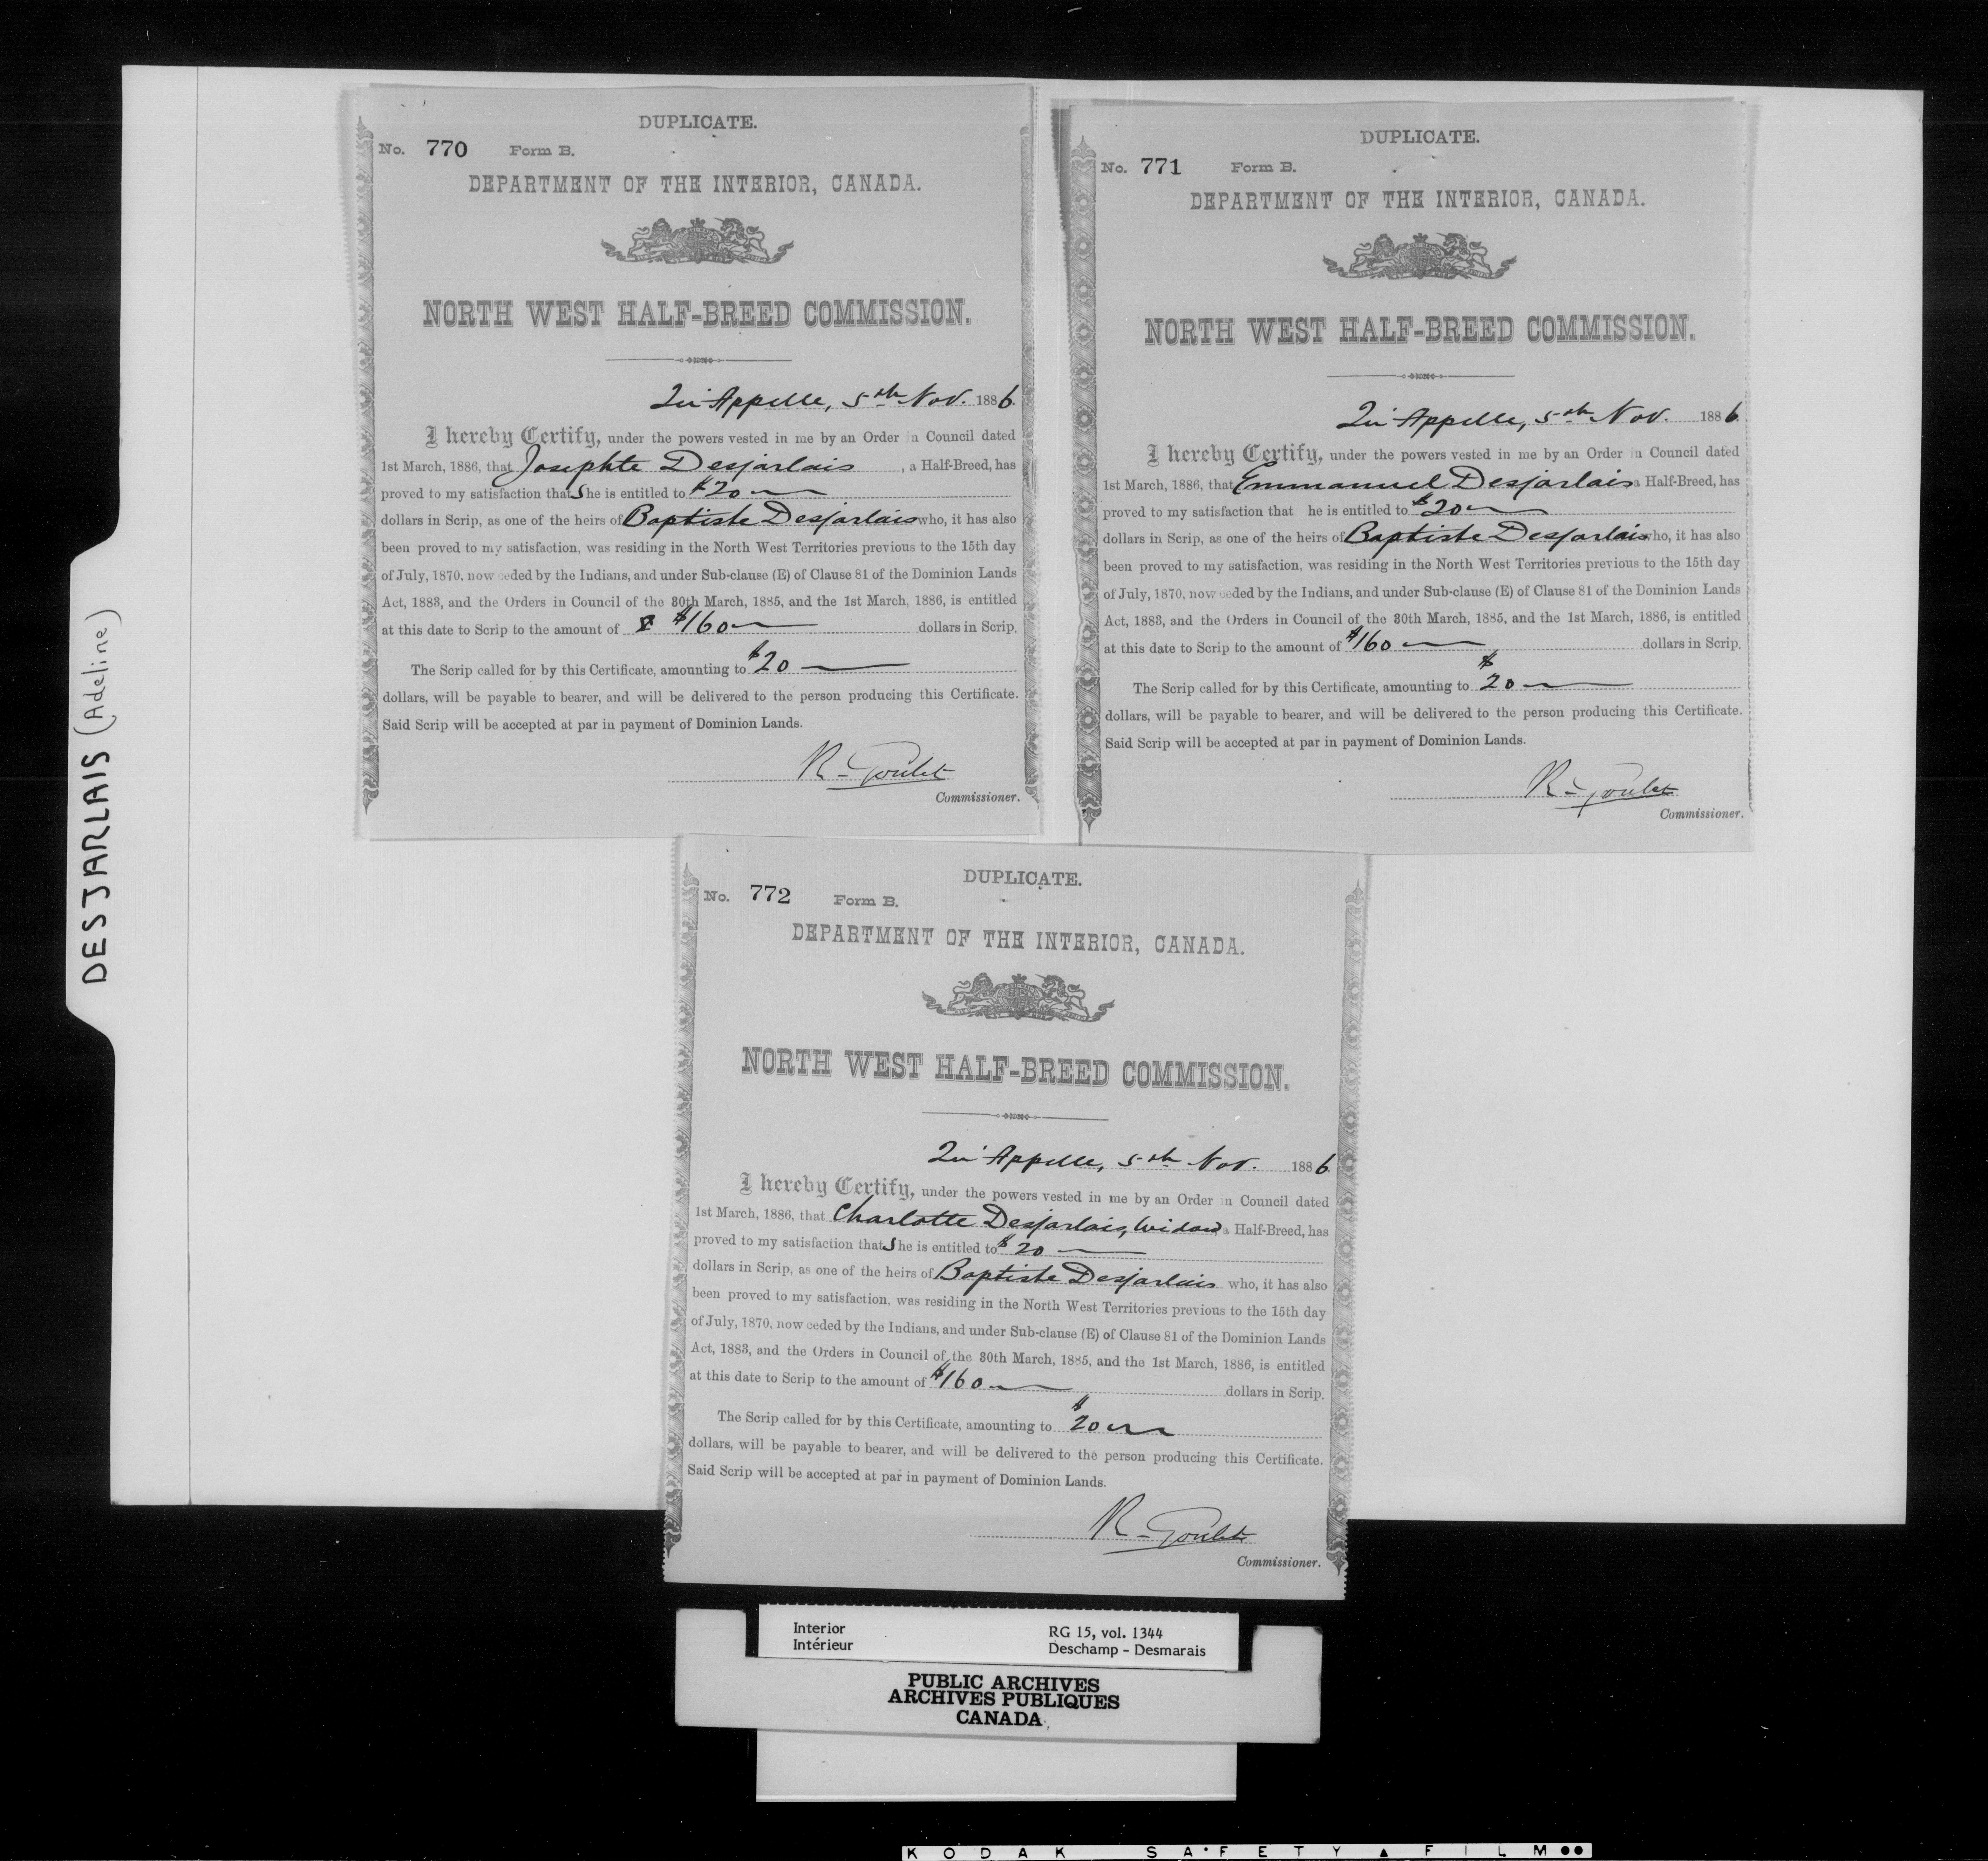 DESJARLAIS (Adeline)
DUPLICATE.
No. 770 Form B.
DEPARTMENT OF THE INTERIOR, CANADA.
NORTH WEST HALF-BREED COMMISSION.
Qu'Appelle, 5th Nov. 1886.
I hereby Certify, under the powers vested in me by an Order in Council dated
1st March, 1886, that Josephte Desjarlais, a Half-Breed, has
proved to my satisfaction that She is entitled to $20
dollars in Scrip, as one of the heirs of Baptiste Desjarlais who, it has also
been proved to my satisfaction, was residing in the North West Territories previous to the 15th day
of July, 1870, now ceded by the Indians, and under Sub-clause (E) of Clause 81 of the Dominion Lands
Act, 1883, and the Orders in Council of the 30th March, 1885, and the 1st March, 1886, is entitled
at this date to Scrip to the amount of $160 dollars in Scrip.
The Scrip called for by this Certificate, amounting to $20
dollars, will be payable to bearer, and will be delivered to the person producing this Certificate.
Said Scrip will be accepted at par in payment of Dominion Lands.
R. Goulet
Commissioner.
DUPLICATE.
No. 771 Form B.
DEPARTMENT OF THE INTERIOR, CANADA.
NORTH WEST HALF-BREED COMMISSION.
Qu'Appelle, 5th Nov. 1886.
I hereby Certify, under the powers vested in me by an Order in Council dated
1st March, 1886, that Emmanuel Desjarlais a Half-Breed, has
proved to my satisfaction that he is entitled to $20
dollars in Scrip, as one of the heirs of Baptiste Desjarlais who, it has also
been proved to my satisfaction, was residing in the North West Territories previous to the 15th day
of July, 1870, now ceded by the Indians, and under Sub-clause (E) of Clause 81 of the Dominion Lands
Act, 1883, and the Orders in Council of the 30th March, 1885, and the 1st March, 1886, is entitled
at this date to Scrip to the amount of $160 dollars in Scrip.
The Scrip called for by this Certificate, amounting to $20
dollars, will be payable to bearer, and will be delivered to the person producing this Certificate.
Said Scrip will be accepted at par in payment of Dominion Lands.
R. Goulet
Commissioner.
DUPLICATE.
No. 772 Form B.
DEPARTMENT OF THE INTERIOR, CANADA.
NORTH WEST HALF-BREED COMMISSION.
Qu'Appelle, 5th Nov. 1886.
I hereby Certify, under the powers vested in me by an Order in Council dated
1st March, 1886, that Charlotte Desjarlais, Widow, a Half-Breed, has
proved to my satisfaction that She is entitled to $20
dollars in Scrip, as one of the heirs of Baptiste Desjarlais who, it has also
been proved to my satisfaction, was residing in the North West Territories previous to the 15th day
of July, 1870, now ceded by the Indians, and under Sub-clause (E) of Clause 81 of the Dominion Lands
Act, 1883, and the Orders in Council of the 30th March, 1885, and the 1st March, 1886, is entitled
at this date to Scrip to the amount of $160 dollars in Scrip.
The Scrip called for by this Certificate, amounting to $20
dollars, will be payable to bearer, and will be delivered to the person producing this Certificate.
Said Scrip will be accepted at par in payment of Dominion Lands.
R. Goulet
Commissioner.
Interior RG 15, vol. 1344
Intérieur Deschamp - Desmarais
PUBLIC ARCHIVES
ARCHIVES PUBLIQUES
CANADA
KODAK SAFETY FILM